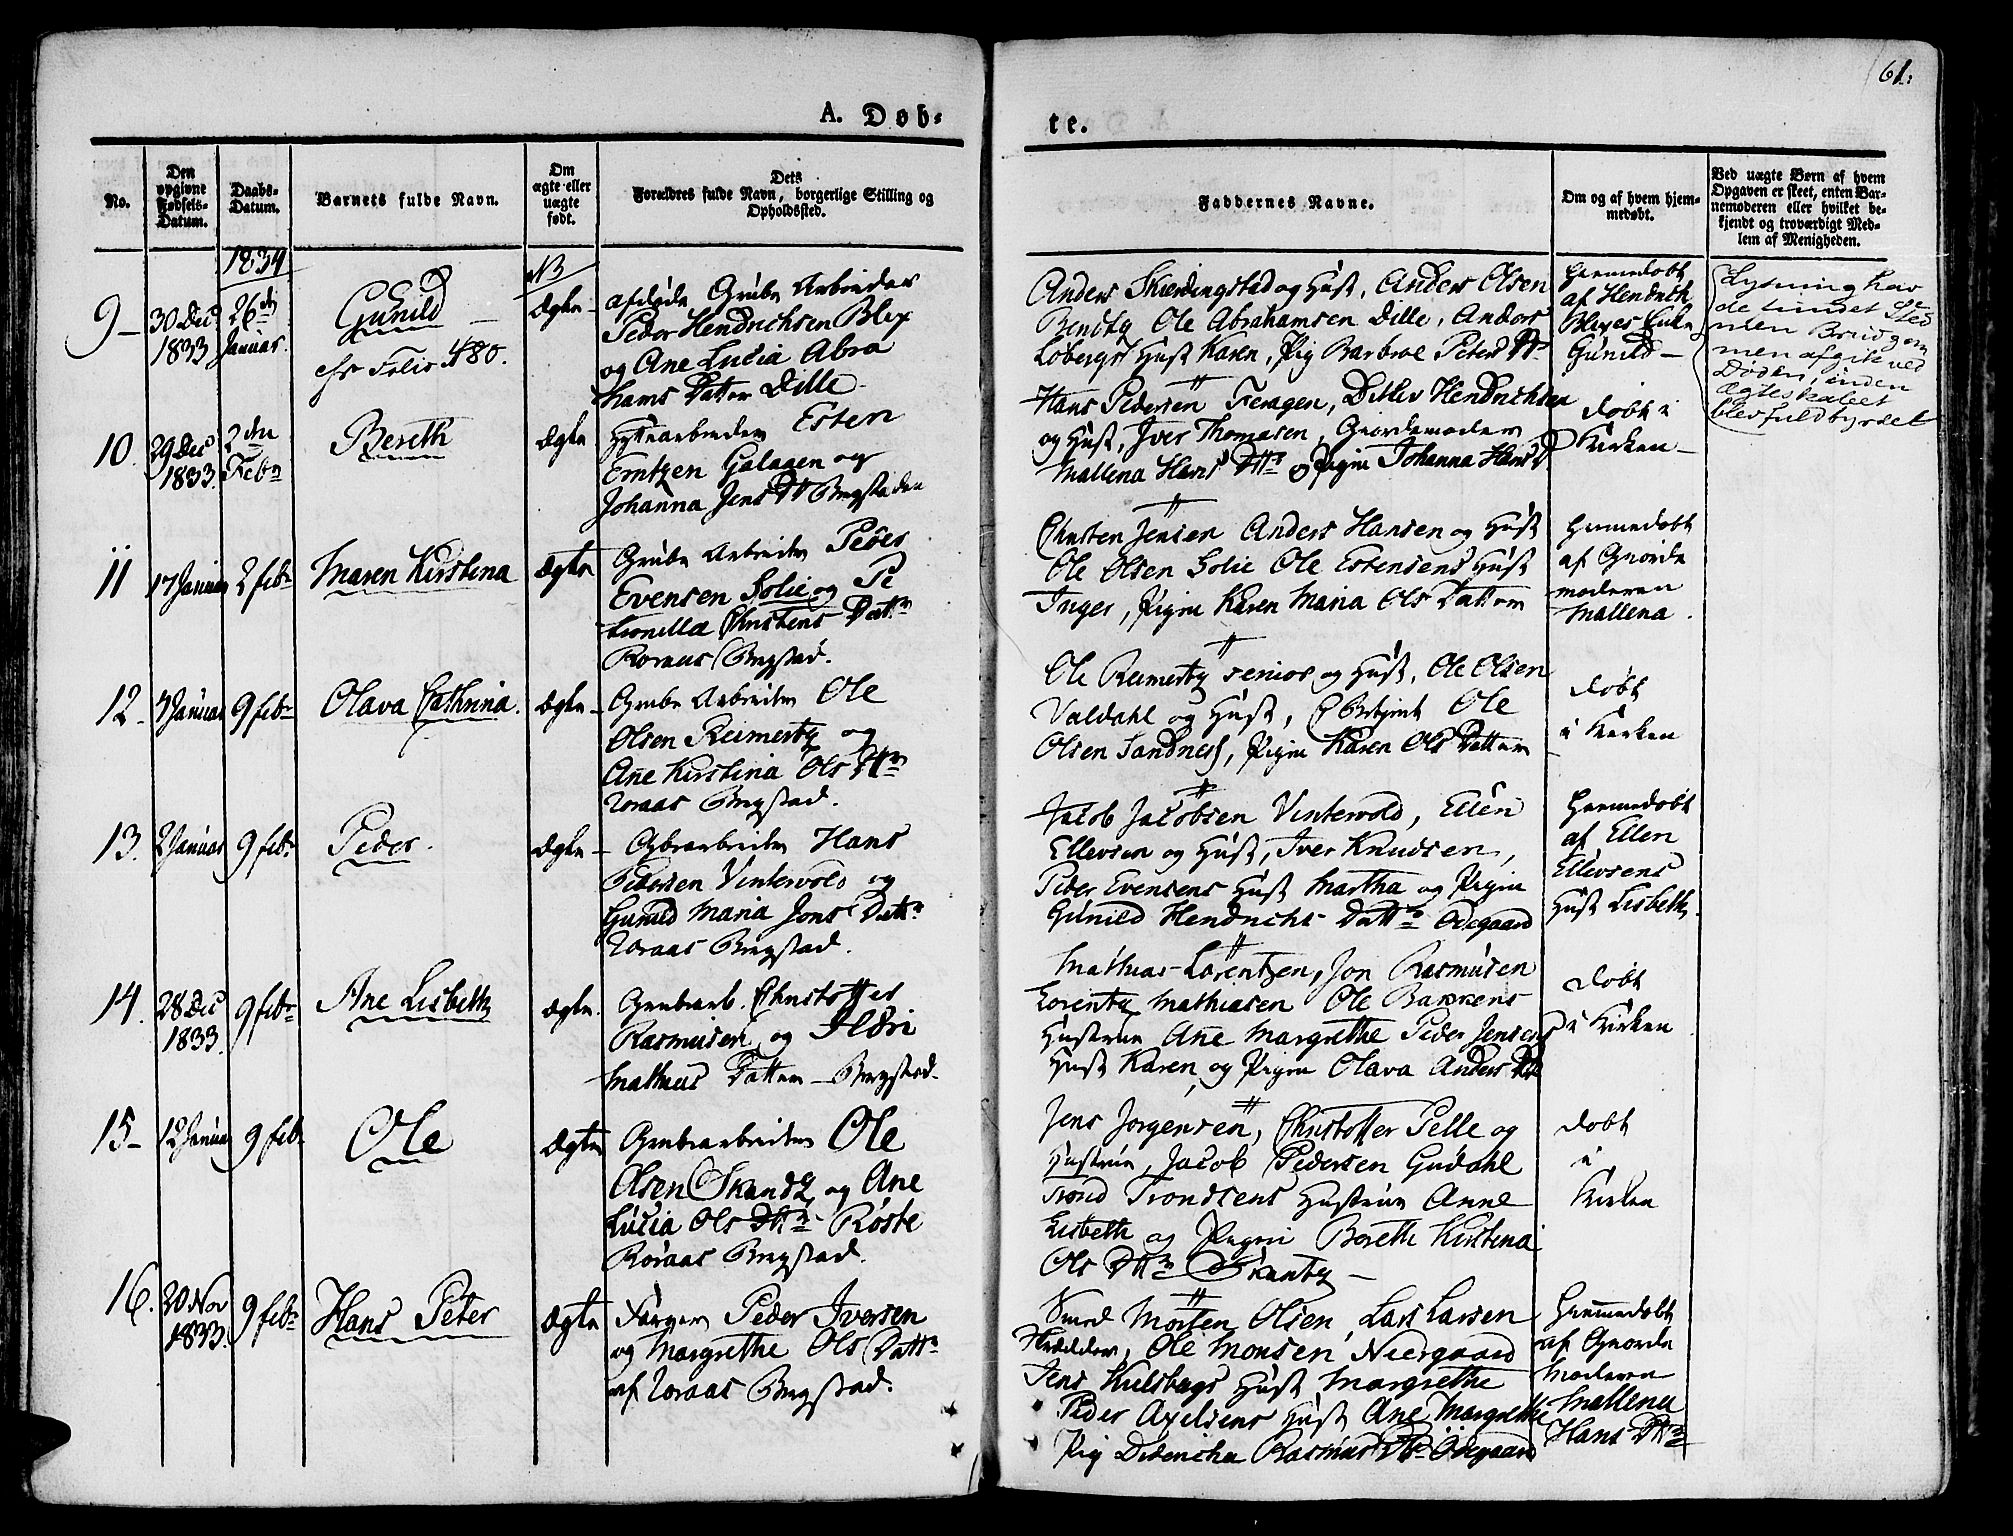 61.
A. Døb-
te.
No.
Den opgivne Fødsels-Datum.
Daabs-Datum.
Barnets fulde Navn.
Om ægte eller uægte født.
Dets Forældres fulde Navn, borgerlige Stilling og Opholdssted.
Faddernes Navne.
Om og af hvem hjemmedøbt.
Ved uægte Børn af hvem Opgaven er skeet, enten Barnemoderen eller hvilket bekjendt og troværdigt Medlem af Menigheden.
1834
NB
9 –
30 Dec
1833
26de
Januar.
Gunild –
cfr Folio 480.
Ægte –
afdøde Grube Arbeider
Peder Hendrichsen Blex
og Ane Lucia Abra
hams Datter Dille
Anders Skierdingstad og Hust, Anders Olsen
Bendtz Ole Abrahamsen Dille, Anders
Løbergs Hust Karen, Pig Barbroe Peders Dtr
hiemmedøbt
af Hendrich
Blexes Enke
Gunild –
Lysning hav
de fundet Sted
men Brudgom
men afgik ved
Døden, inden
Ægteskabet
blev fuldbyrdet
10.
29 Dec
1833.
2den
Febr
Bereth
Ægte
Hytearbeider Esten
Erntzen Galaaen og
Johanna Jens Dtr Bergstaden
Hans Pedersen Feragen, Ditlev Hendrichsen
og Hust, Iver Thomasen, Giordemoder
Mallena Hans Dttr og Pigen Johanna Hans D
døbt i
Kirken –
11
17 Januar
2 febr
Maren Kirstina
Ægte
Grube Arbeider Peder
Evensen Solie og Pe
tronella Christens Dattr
Roraas Bergstad.
Christen Jensen Anders Hansen og Hust
Ole Olsen Solie Ole Estensens Hust
Inger, Pigen Karen Maria Ols Datter
hiemmedøbt
af Giorde
moderen
Mallena.
12 –
4 Januar
9 febr
Olava Cathrina.
Ægte –
Grube Arbeider Ole
Olsen Reimertz og
Ane Kirstina Ols Dttr
Roraas Bergstad.
Ole Reimertz senior og Hust, Ole Olsen
Valdahl og Hust, Ole
Olsen Sandness, Pigen Karen Ols Datter
døbt
i Kirken
13.
2 Januar
9 febr
Peder.
Ægte –
Grubearbeider Hans
Pedersen Vintervold og
Gunild Maria Jons Dattr
Roraas Bergstad.
Jacob Jacobsen Vintervold, Ellen
Ellevsen og Hust, Iver Knudsen,
Peder Evensens Hust Martha og Pigen
Gunild Hendrichs Dattr Ødegaard
hiemmedøbt
af Ellen
Ellevsens
Hust Lisbeth.
14.
28 Dec
1833.
9 febr
Ane Lisbeth
Ægte.
Grubearb. Christoffer
Rasmusen og Ildri
Mathias Datter – Bergstad.
Mathias Lorentzen, Jon Rasmusen
Lorentz Mathiasen Ole Bakkens
Hustrue Ane Margrethe Peder Jensens
Hust Karen, og Pigen Olava Anders Dtr
døbt
i Kirken
15 –
12 Januar
9 feb
Ole
Ægte
Grubearbeider Ole
Olsen Skantz og Ane
Lucia Ols Dttr Røste
Roraas Bergstad.
Jens Jorgensen, Christoffer Pelle og
Hustrue, Jacob Pedersen Gudahl
Trond Trondsens Hustrue Anne
Lisbeth og Pigen Bereth Kirstina
Ols Dttr Skantz –
døbt
i
Kirken
16.
20 Nov
1833.
9 febr
Hans Peter
Ægte
Farver Peder Iversen
og Margrethe Ols Dattr
af Roraas Bergstad.
Smed Morten Olsen, Lars Larsen
Skrædder, Ole Monsen Neergaard
Jens Hust Margrethe
Peder Axelsens Hust Ane Margrethe
Pig Didericha Rasmus Dtr Ødegaard
hiemmedøbt
af Giorde
moderen
Mallena
Hans Dttr